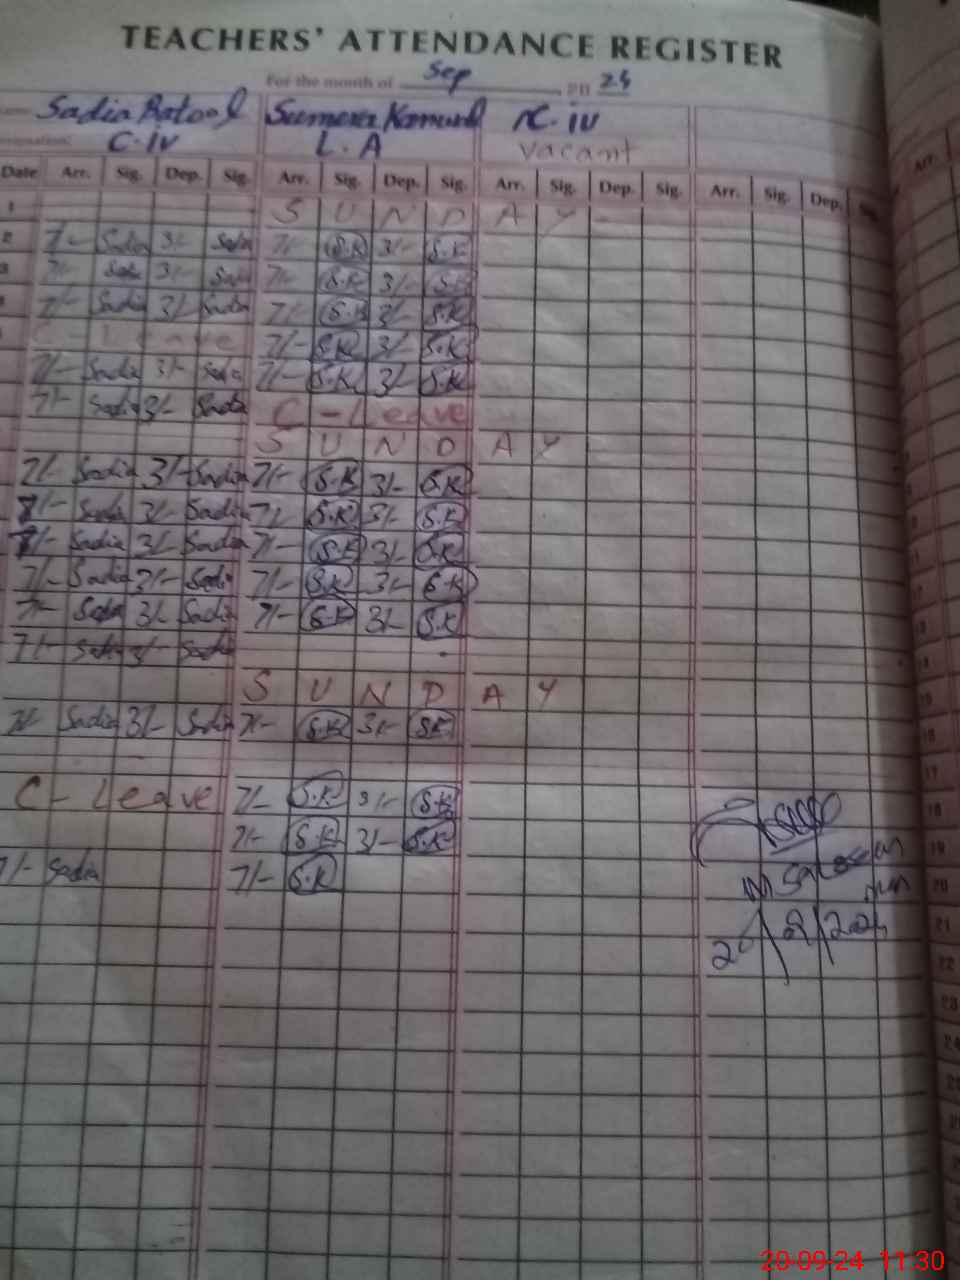 TEACHERS' ATTENDANCE REGISTER
For the month of Sep 20 24
Sadia Batool Sumera Kanwal N.C.iv
C.iv L.A Vacant
Date Arr. Sig. Dep. Sig. Arr. Sig. Dep. Sig. Arr. Sig. Dep. Sig. Arr. Sig. Dep. Sig.
1 S U N D A Y
2 7/- Sadia 3/- Sadia 7/- S.K 3/- S.K
3 7/- Sadia 3/- Sadia 7/- S.K 3/- S.K
7/- Sadia 3/- Sadia 7/- S.K 3/- S.K
C - Leave 7/- S.K 3/- S.K
7/- Sadia 3/- Sadia 7/- S.K 3/- S.K
7/- Sadia 3/- Sadia C - Leave
S U N D A Y
7/- Sadia 3/- Sadia 7/- S.K 3/- S.K
7/- Sadia 3/- Sadia 7/- S.K 3/- S.K
7/- Sadia 3/- Sadia 7/- S.K 3/- S.K
7/- Sadia 3/- Sadia 7/- S.K 3/- S.K
7/- Sadia 3/- Sadia 7/- S.K 3/- S.K
7/- Sadia 3/- Sadia
S U N D A Y
7/- Sadia 3/- Sadia 7/- S.K 3/- S.K
C - Leave 7/- S.K 3/- S.K
7/- S.K 3/- S.K
7/- Sadia 7/- S.K
Arr.
16
17
18
19
20
21
22
23
24
20-09-24 11:30